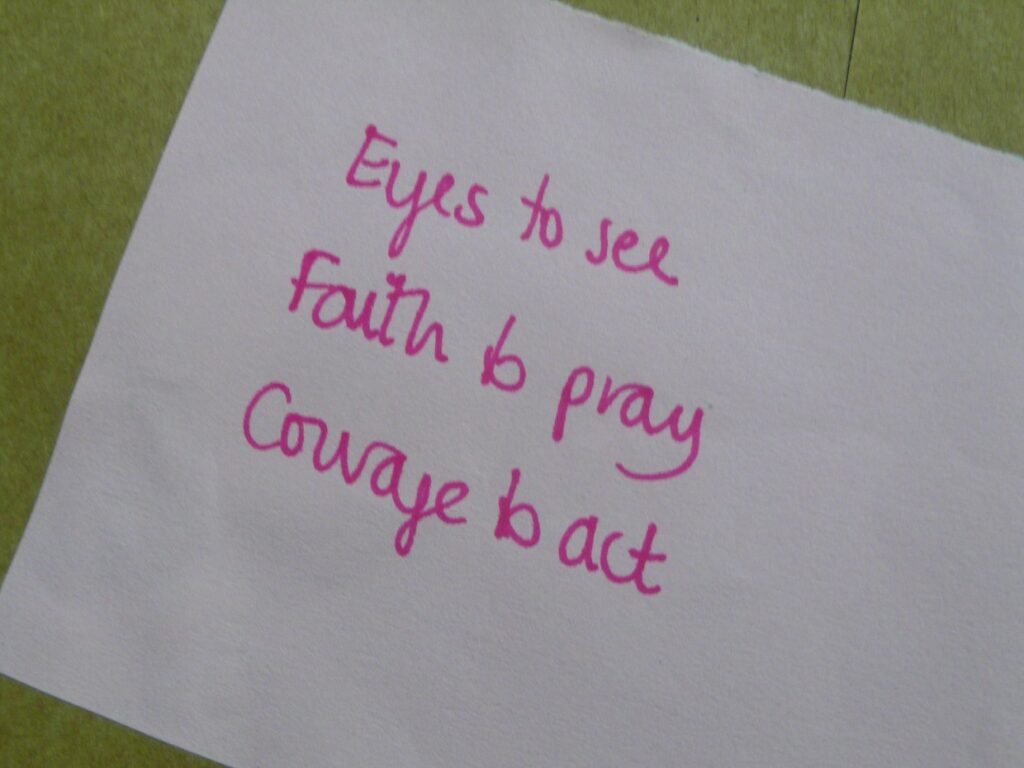 Eyes to see
Faith to pray
Courage to act